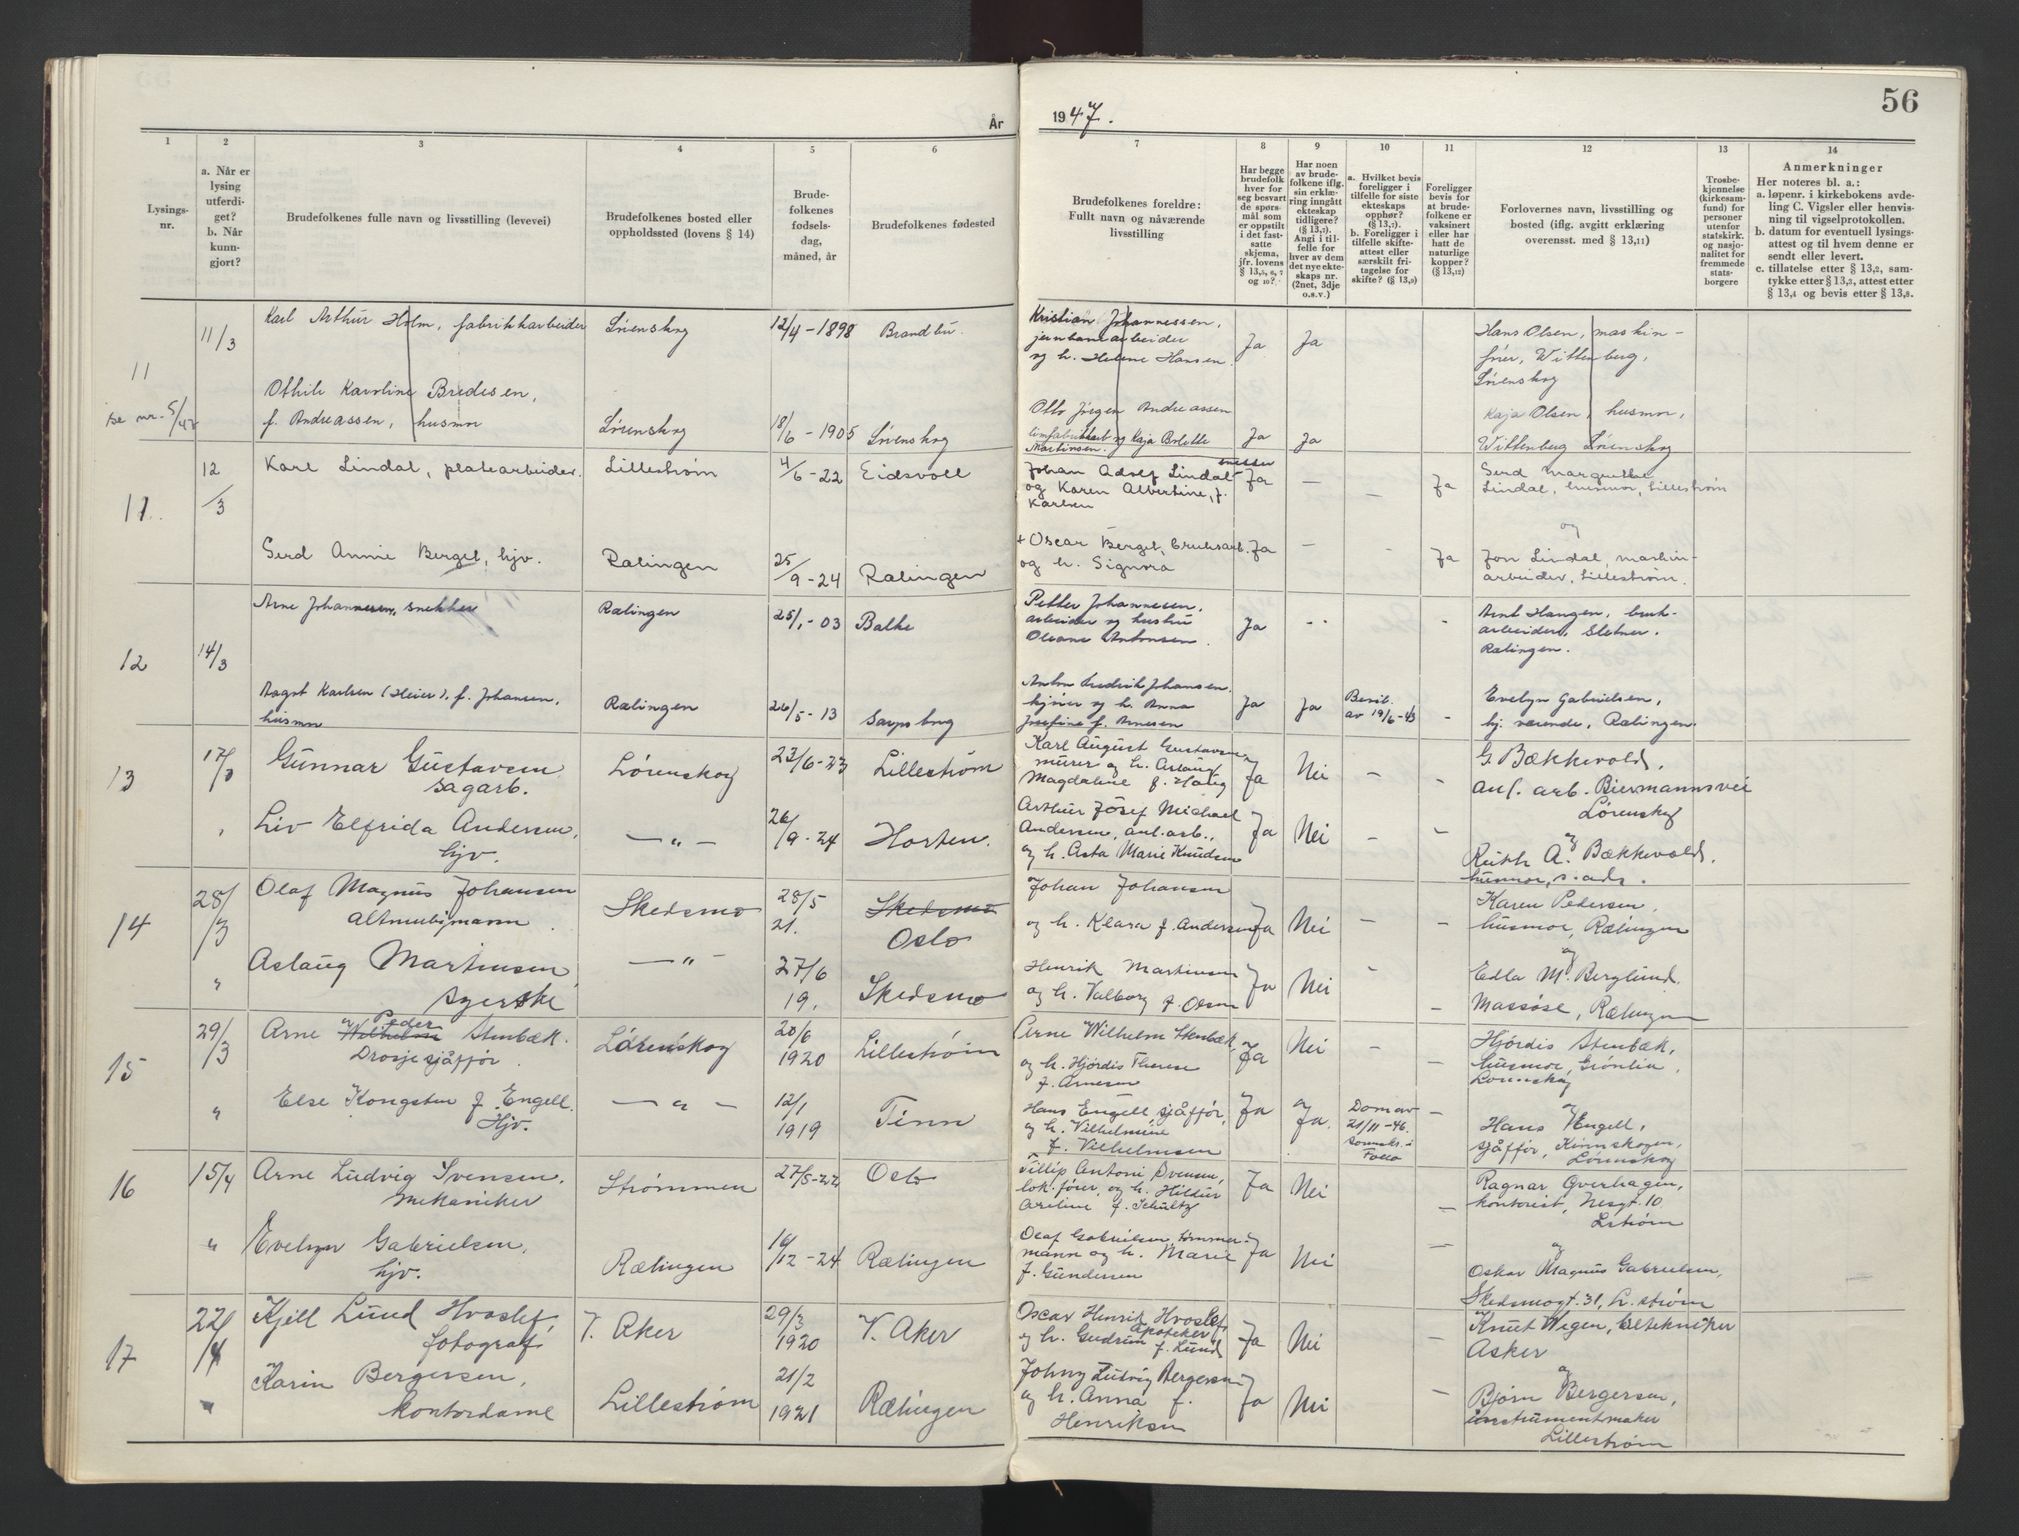 56
År
1947.
1
2
3
4
5
6
7
8
9
10
11
12
13
14
Lysings-
nr.
a. Når er
lysing
utferdi-
get?
b. Når
kunn-
gjort?
Brudefolkenes fulle navn og livsstilling (levevei)
Brudefolkenes bosted eller
oppholdssted (lovens § 14)
Brude-
folkenes
fødsels-
dag,
måned, år
Brudefolkenes fødested
Brudefolkenes foreldre:
Fullt navn og nåværende
livsstilling
Har begge
brudefolk
hver for
seg besvart
de spørs-
mål som
er oppstilt
i det fast-
satte
skjema,
jfr. lovens
§ 13,5, 6, 7
og 10?
Har noen
av brude-
folkene iflg.
sin erklæ-
ring inngått
ekteskap
tidligere?
(§ 13,7).
Angi i til-
felle for
hver av dem
det nye ekte-
skaps nr.
(2net, 3dje
o.s.v.)
a. Hvilket bevis
foreligger i
tilfelle for siste
ekteskaps
opphør?
(§ 13,7).
b. Foreligger i
tilfelle skifte-
attest eller
særskilt fri-
tagelse for
skifte? (§ 13,9)
Foreligger
bevis for
at brude-
folkene er
vaksinert
eller har
hatt de
naturlige
kopper?
(§ 13,12)
Forlovernes navn, livsstilling og
bosted (iflg. avgitt erklæring
overensst. med § 13,11)
Trosbe-
kjennelse
(kirkesam-
fund) for
personer
utenfor
statskirk.
og nasjo-
nalitet for
fremmede
stats-
borgere
Anmerkninger
Her noteres bl. a.:
a. løpenr. i kirkebokens avde-
ling C. Vigsler eller henvis-
ning til vigselprotokollen.
b. datum for eventuell lysings-
attest og til hvem denne er
sendt eller levert.
c. tillatelse etter § 13,2, sam-
tykke etter § 13,3, attest etter
§ 13,4 og bevis etter § 13,8.
11
se nr. 5/47
11/3
Karl Arthur Holm, fabrikkarbeider
Lørenskog
12/4-1898
Brandbu.
Kristian Johannessen,
jernbanearbeider
og h. Helene Hansen
Ja
Ja
Hans Olsen, maskin-
fører, Wittenberg,
Lørenskog
Othile Karoline Bredesen,
f. Andreassen, husmor
Lørenskog
18/6-1905
Lørenskog
Otto Jørgen Andreassen
limfabrikkarb og Kaja Bolette
Martinsen.
Ja
Ja
Kaja Olsen, husmor,
Wittenberg Lørenskog
11.
12/3
Karl Lindal, platearbeider
Lillestrøm
4/6-22
Eidsvoll
Johan Adolf Lindal
og Karen Albertine, f.
Karlsen
Ja
—
—
Ja
Gerd Margrethe
Lindal, husmor, Lillestrøm
og
Gerd Annie Berget, hjv.
Rælingen
25/9-24
Rælingen
+ Oscar Berget, bruksarb.
og h. Signora
Ja
—
Ja
Jon Lindal, maskin-
arbeider, Lillestrøm.
12
14/3
Arne Johannesen, snekker
Rælingen
25/1-03
Balke
Petter Johannesen,
arbeider og hustru
Oleane Antonsen.
Ja
-
-
Arnt Haugen, bruk-
arbeider, Sletner.
Rælingen.
Aagot Karlsen (Heier), f. Johansen,
husmor
Rælingen
26/5-13
Sarpsborg
Anton Fredrik Johansen,
kjører og h. Anna
Josefine f. Arnesen
Ja
Ja
Bevill.
av 19/6-43
-
Evelyn Gabrielsen,
hj. værende, Rælingen.
13
17/3
Gunnar Gustavsen
sagarb.
Lørenskog
23/6-23
Lillestrøm
Karl August Gustavsen
murer og h. Aslaug
Magdaline f. Haug
Ja
Nei
—
-
G. Bækkevold,
anl. arb. Biermannsvei
Lørenskog
og
Liv Elfrida Andersen,
hjv.
—"—
26/9-24
Horten.
Arthur Josef Michael
Andersen, anl. arb.,
og h. Asta Marie Knudsen
Ja
Nei
—
—
Ruth A. Bækkevold,
husmor, s. ads.
14
28/3
Olaf Magnus Johansen
altmuligmann
Skedsmo
28/5
21.
Skedsmo
Oslo
Johan Johansen
og h. Klara f. Andersen
Ja
Nei
—
—
Karen Pedersen,
husmor, Rælingen
og
"
Aslaug Martinsen,
syerske
—"—
27/6
19.
Skedsmo
Henrik Martinsen
og h. Valborg f. Olsen
Ja
Nei
-
—
Edla M. Berglund
Massøse, Rælingen
15
29/3
Arne Wilhelm Peder Stenbæk.
Drosjesjåffør.
Lørenskog
20/6
1920
Lillestrøm
Arne Wilhelm Stenbæk,
og h. Hjørdis Therese
f. Arnesen
Ja
Nei
—
—
Hjördis Stenbæk,
husmor, Grønlia,
Lørenskog
og
"
Else Kongsten f. Engell.
Hjv.
—"—
12/1
1919
Tinn
Hans Engell, sjåffør,
og h. Vilhelmine
f. Vilhelmsen
Ja
Ja.
Dom av
21/11-46.
Follo
—
Hans Engell,
sjåffør, Kinnskogen,
Lørenskog
16
15/4
Arne Ludvig Svensen,
mekaniker
Strømmen
27/5-22
Oslo
Fillip Antoni Svensen,
lok. fører, og h. Hildur
Arline f. Schultz
Ja
Nei
—
Ragnar Overhagen,
kontorist, Nesgt. 10
Lstrøm
og
"
Evelyn Gabrielsen,
hjv.
Rælingen
16/12-24
Rælingen
Olaf Gabrielsen, tømmer-
mann og h. Marie
f. Gundersen
Ja
Nei
—
Oskar Magnus Gabrielsen,
Skedsmogt. 31, L. strøm
17
22/4
Kjell Lund Hvoslef,
fotograf
V. Aker
29/3
1920
V. Aker
Oscar Henrik Hvoslef,
Apoteker
og h. Gudrun f. Lund
Ja
Nei
—
Knut Wigen, Eltekniker
Asker
og
"
Karin Bergersen,
kontordame
Lillestrøm
21/2
1921
Rælingen
Johny Ludvig Bergersen
og h. Anna f.
Henriksen
Ja
Nei
—
Bjørn Bergersen,
instrumentmaker
Lillestrøm